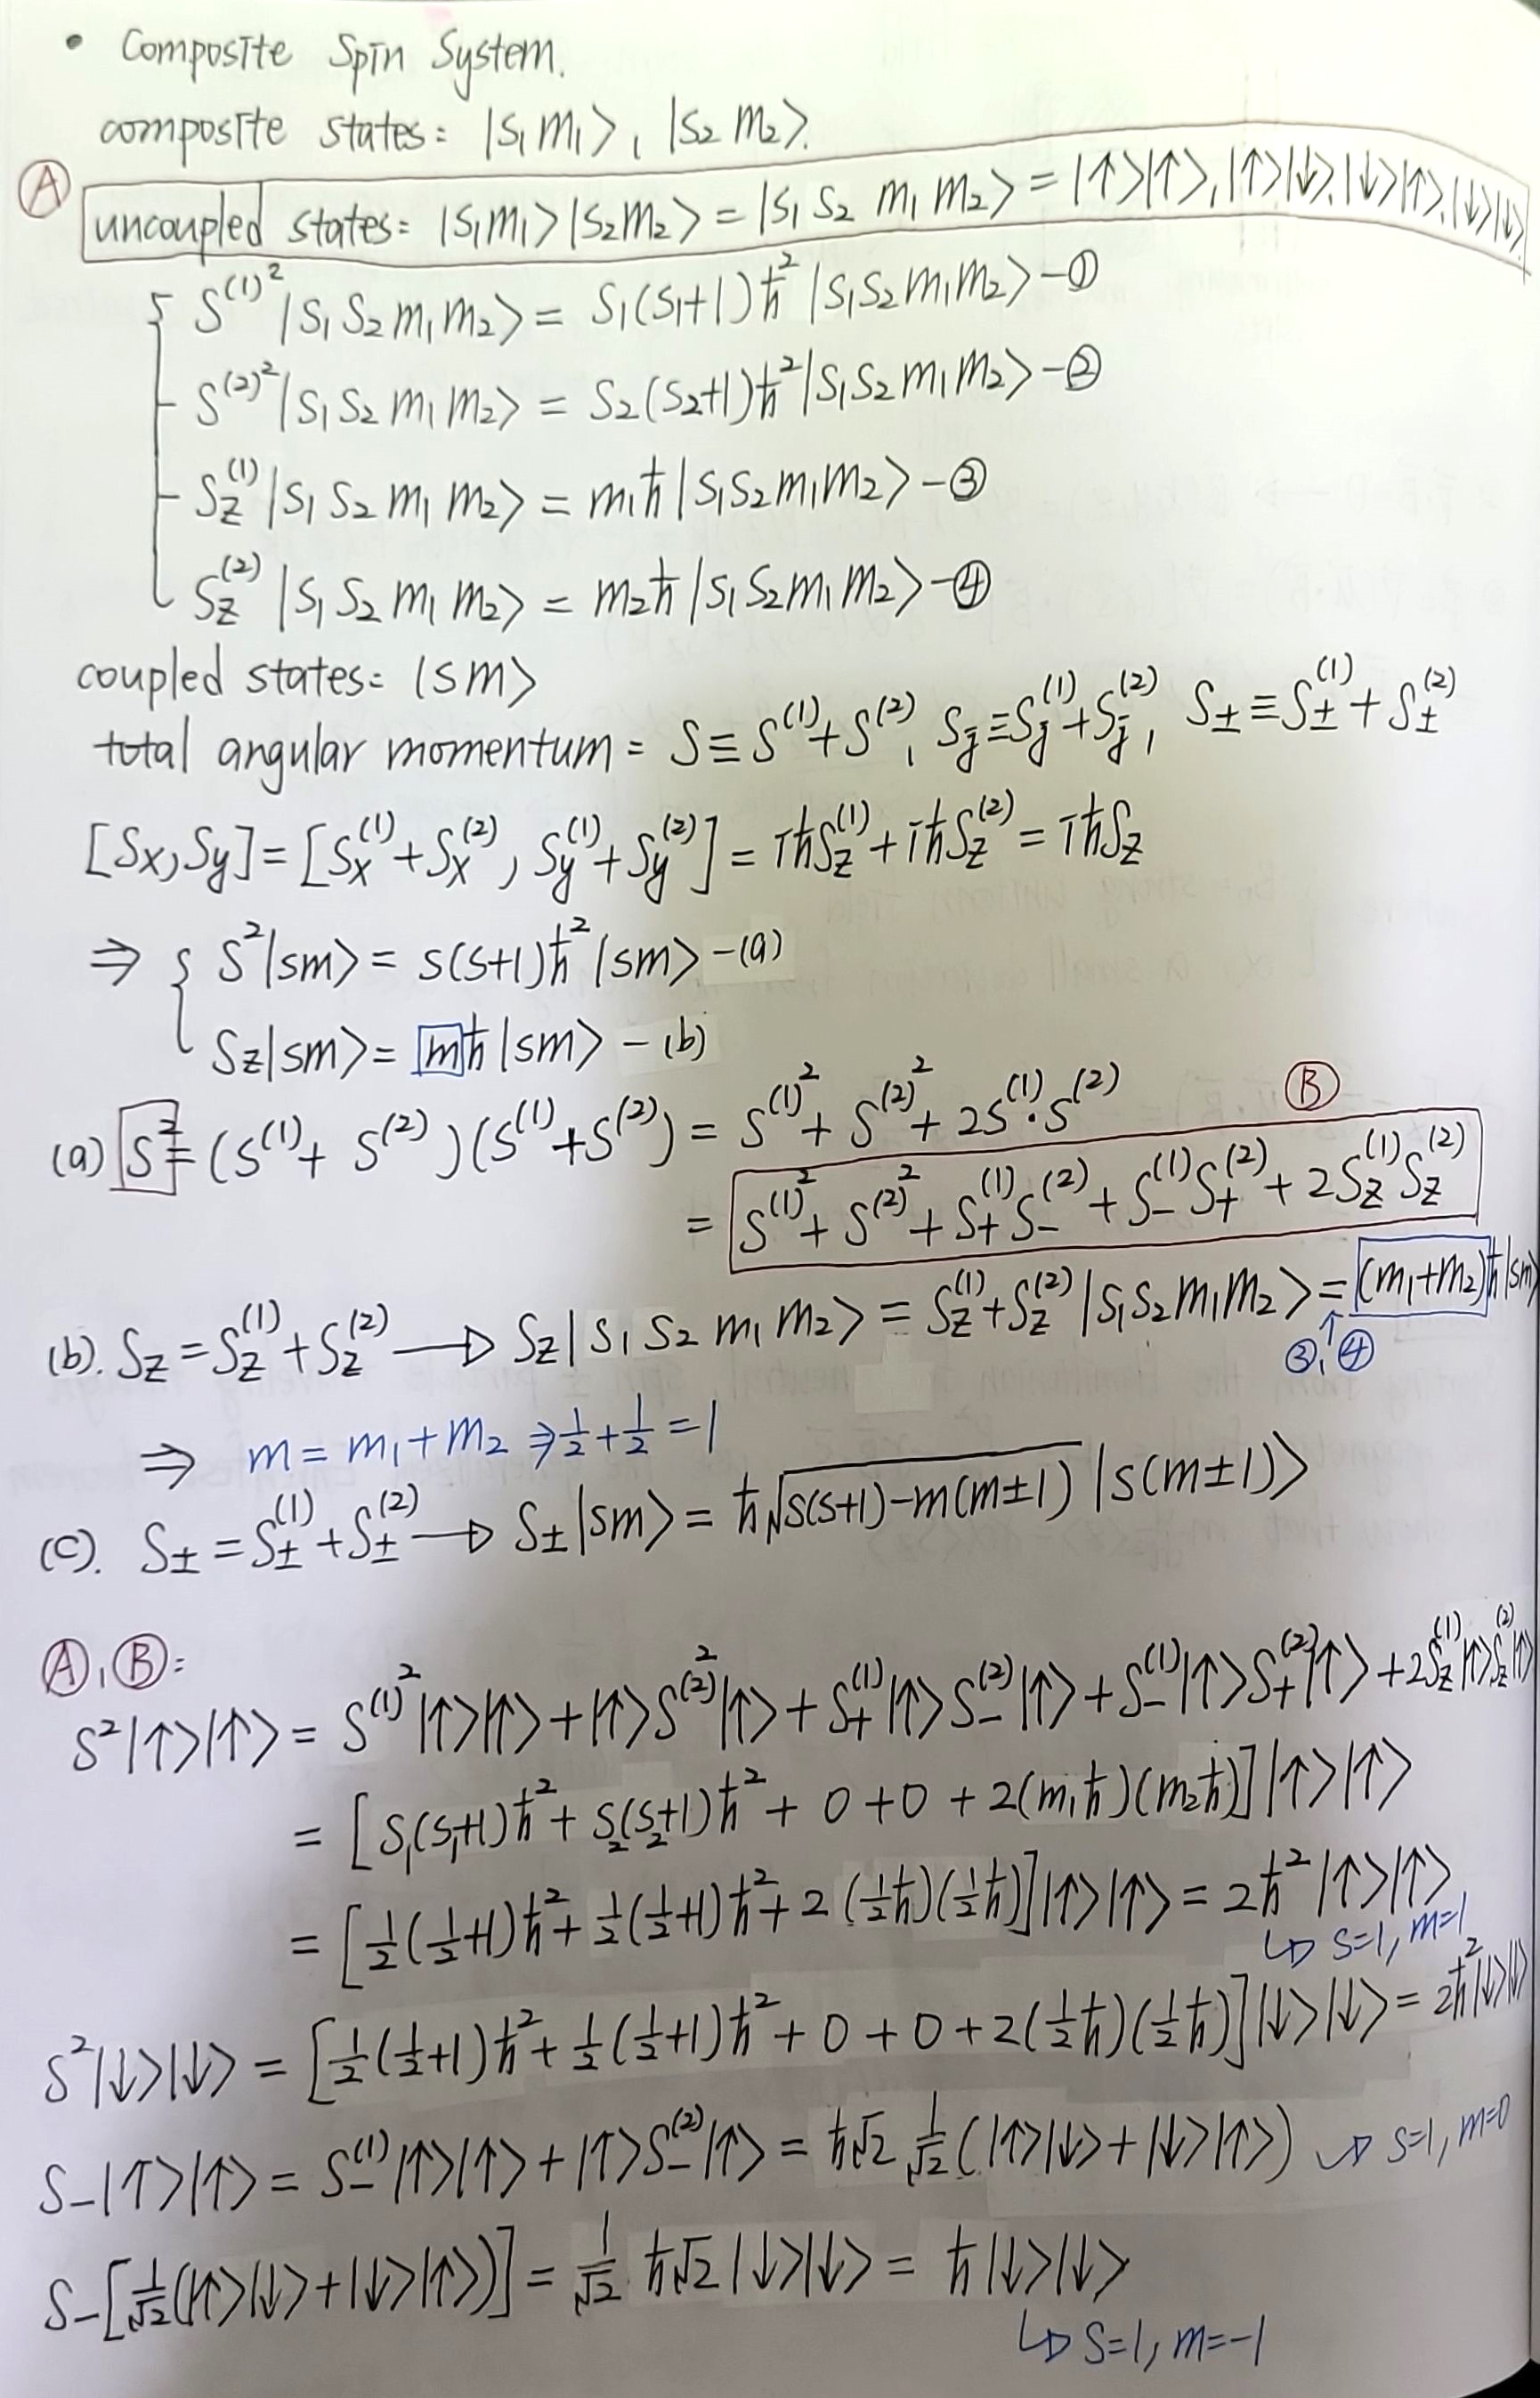 • Composite Spin System.
composite states: |s₁ m₁⟩, |s₂ m₂⟩.
Ⓐ uncoupled states: |s₁m₁⟩|s₂m₂⟩ = |s₁ s₂ m₁ m₂⟩ = |↑⟩|↑⟩, |↑⟩|↓⟩, |↓⟩|↑⟩, |↓⟩|↓⟩.
S⁽¹⁾²|s₁ s₂ m₁ m₂⟩ = s₁(s₁+1)ħ²|s₁s₂m₁m₂⟩ -①
S⁽²⁾²|s₁ s₂ m₁ m₂⟩ = s₂(s₂+1)ħ²|s₁s₂m₁m₂⟩ -②
S_z⁽¹⁾|s₁ s₂ m₁ m₂⟩ = m₁ħ|s₁s₂m₁m₂⟩ -③
S_z⁽²⁾|s₁ s₂ m₁ m₂⟩ = m₂ħ|s₁s₂m₁m₂⟩ -④
coupled states: |sm⟩
total angular momentum = S ≡ S⁽¹⁾+S⁽²⁾, S_j ≡ S_j⁽¹⁾+S_j⁽²⁾, S± ≡ S±⁽¹⁾+S±⁽²⁾
[Sx, Sy] = [Sx⁽¹⁾+Sx⁽²⁾, Sy⁽¹⁾+Sy⁽²⁾] = iħS_z⁽¹⁾+iħS_z⁽²⁾ = iħS_z
⇒ { S²|sm⟩ = s(s+1)ħ²|sm⟩ -(a)
S_z|sm⟩ = mħ|sm⟩ -(b)
(a) S² = (S⁽¹⁾+ S⁽²⁾)(S⁽¹⁾+S⁽²⁾) = S⁽¹⁾²+ S⁽²⁾²+ 2S⁽¹⁾·S⁽²⁾ Ⓑ
= S⁽¹⁾²+ S⁽²⁾²+ S₊⁽¹⁾S₋⁽²⁾+ S₋⁽¹⁾S₊⁽²⁾+ 2S_z⁽¹⁾S_z⁽²⁾
(b). S_z = S_z⁽¹⁾+S_z⁽²⁾ → S_z|s₁ s₂ m₁ m₂⟩ = S_z⁽¹⁾+S_z⁽²⁾|s₁s₂m₁m₂⟩ = (m₁+m₂)ħ|sm⟩
↑ ③,④
⇒ m = m₁+m₂ ⇒ 1/2+1/2 = 1
(c). S± = S±⁽¹⁾+S±⁽²⁾ → S±|sm⟩ = ħ√(s(s+1)-m(m±1)) |s(m±1)⟩
Ⓐ,Ⓑ:
S²|↑⟩|↑⟩ = S⁽¹⁾²|↑⟩|↑⟩ + |↑⟩S⁽²⁾²|↑⟩ + S₊⁽¹⁾|↑⟩S₋⁽²⁾|↑⟩ + S₋⁽¹⁾|↑⟩S₊⁽²⁾|↑⟩ + 2S_z⁽¹⁾|↑⟩S_z⁽²⁾|↑⟩
= [s₁(s₁+1)ħ²+ s₂(s₂+1)ħ²+ 0 + 0 + 2(m₁ħ)(m₂ħ)]|↑⟩|↑⟩
= [1/2(1/2+1)ħ²+ 1/2(1/2+1)ħ²+ 2(1/2ħ)(1/2ħ)]|↑⟩|↑⟩ = 2ħ²|↑⟩|↑⟩
↳ s=1, m=1
S²|↓⟩|↓⟩ = [1/2(1/2+1)ħ²+ 1/2(1/2+1)ħ²+ 0 + 0 + 2(1/2ħ)(1/2ħ)]|↓⟩|↓⟩ = 2ħ²|↓⟩|↓⟩
S₋|↑⟩|↑⟩ = S₋⁽¹⁾|↑⟩|↑⟩ + |↑⟩S₋⁽²⁾|↑⟩ = ħ√2 1/√2(|↑⟩|↓⟩+|↓⟩|↑⟩) ↳ s=1, m=0
S₋[1/√2(|↑⟩|↓⟩+|↓⟩|↑⟩)] = 1/√2 ħ√2|↓⟩|↓⟩ = ħ|↓⟩|↓⟩
↳ s=1, m=-1